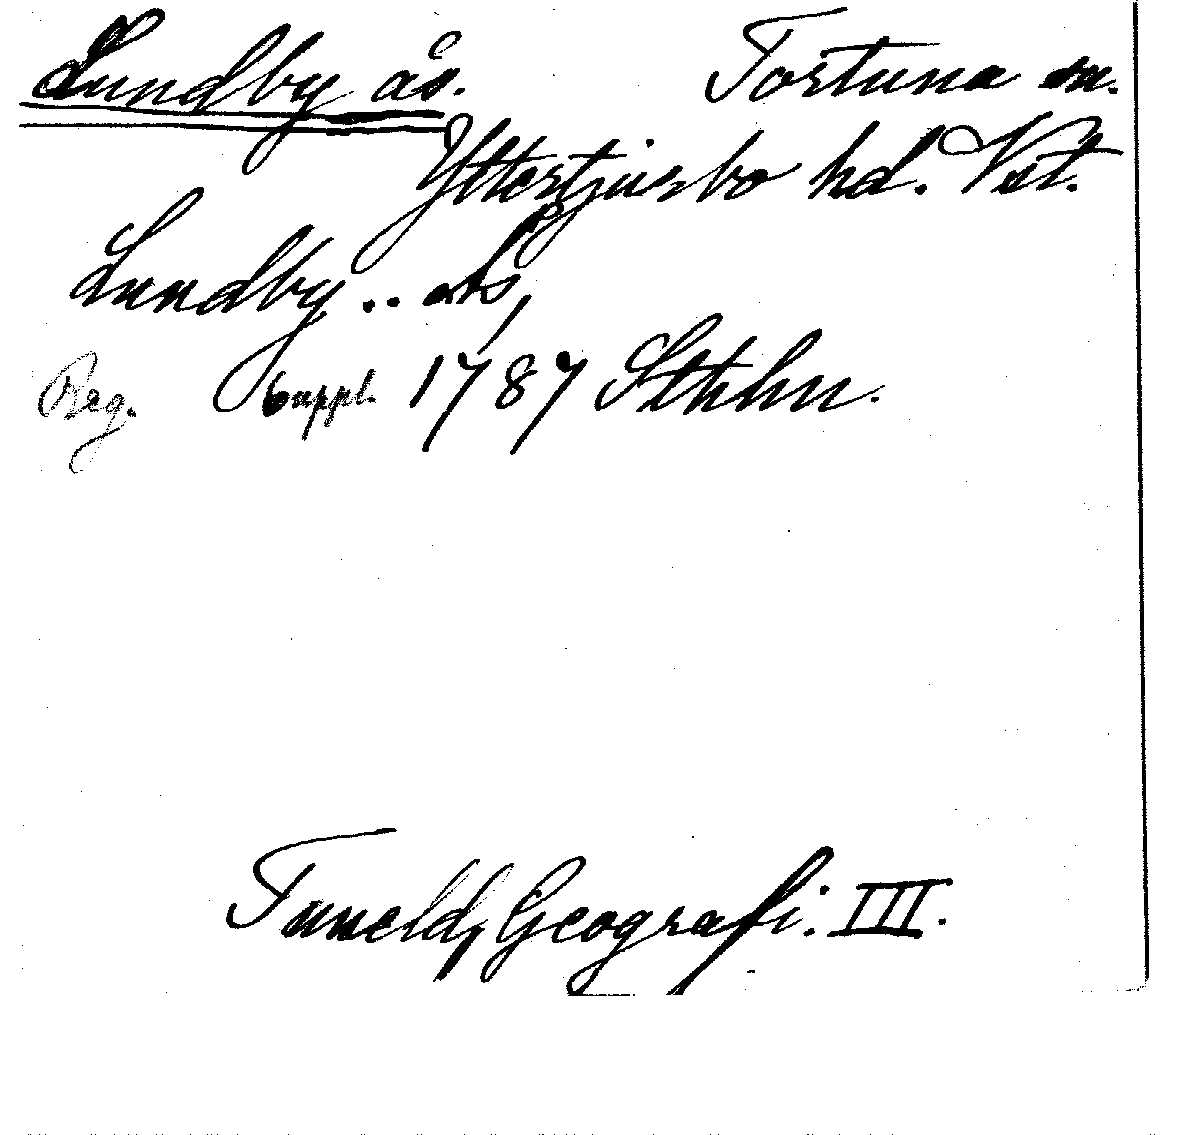 Lundby ås. Tortuna sn.
Yttertjurbo hd. Vstl.
Lundby .. ås,
Reg. Suppl. 1787 Sthlm.
Tuneld, Geografi. III.